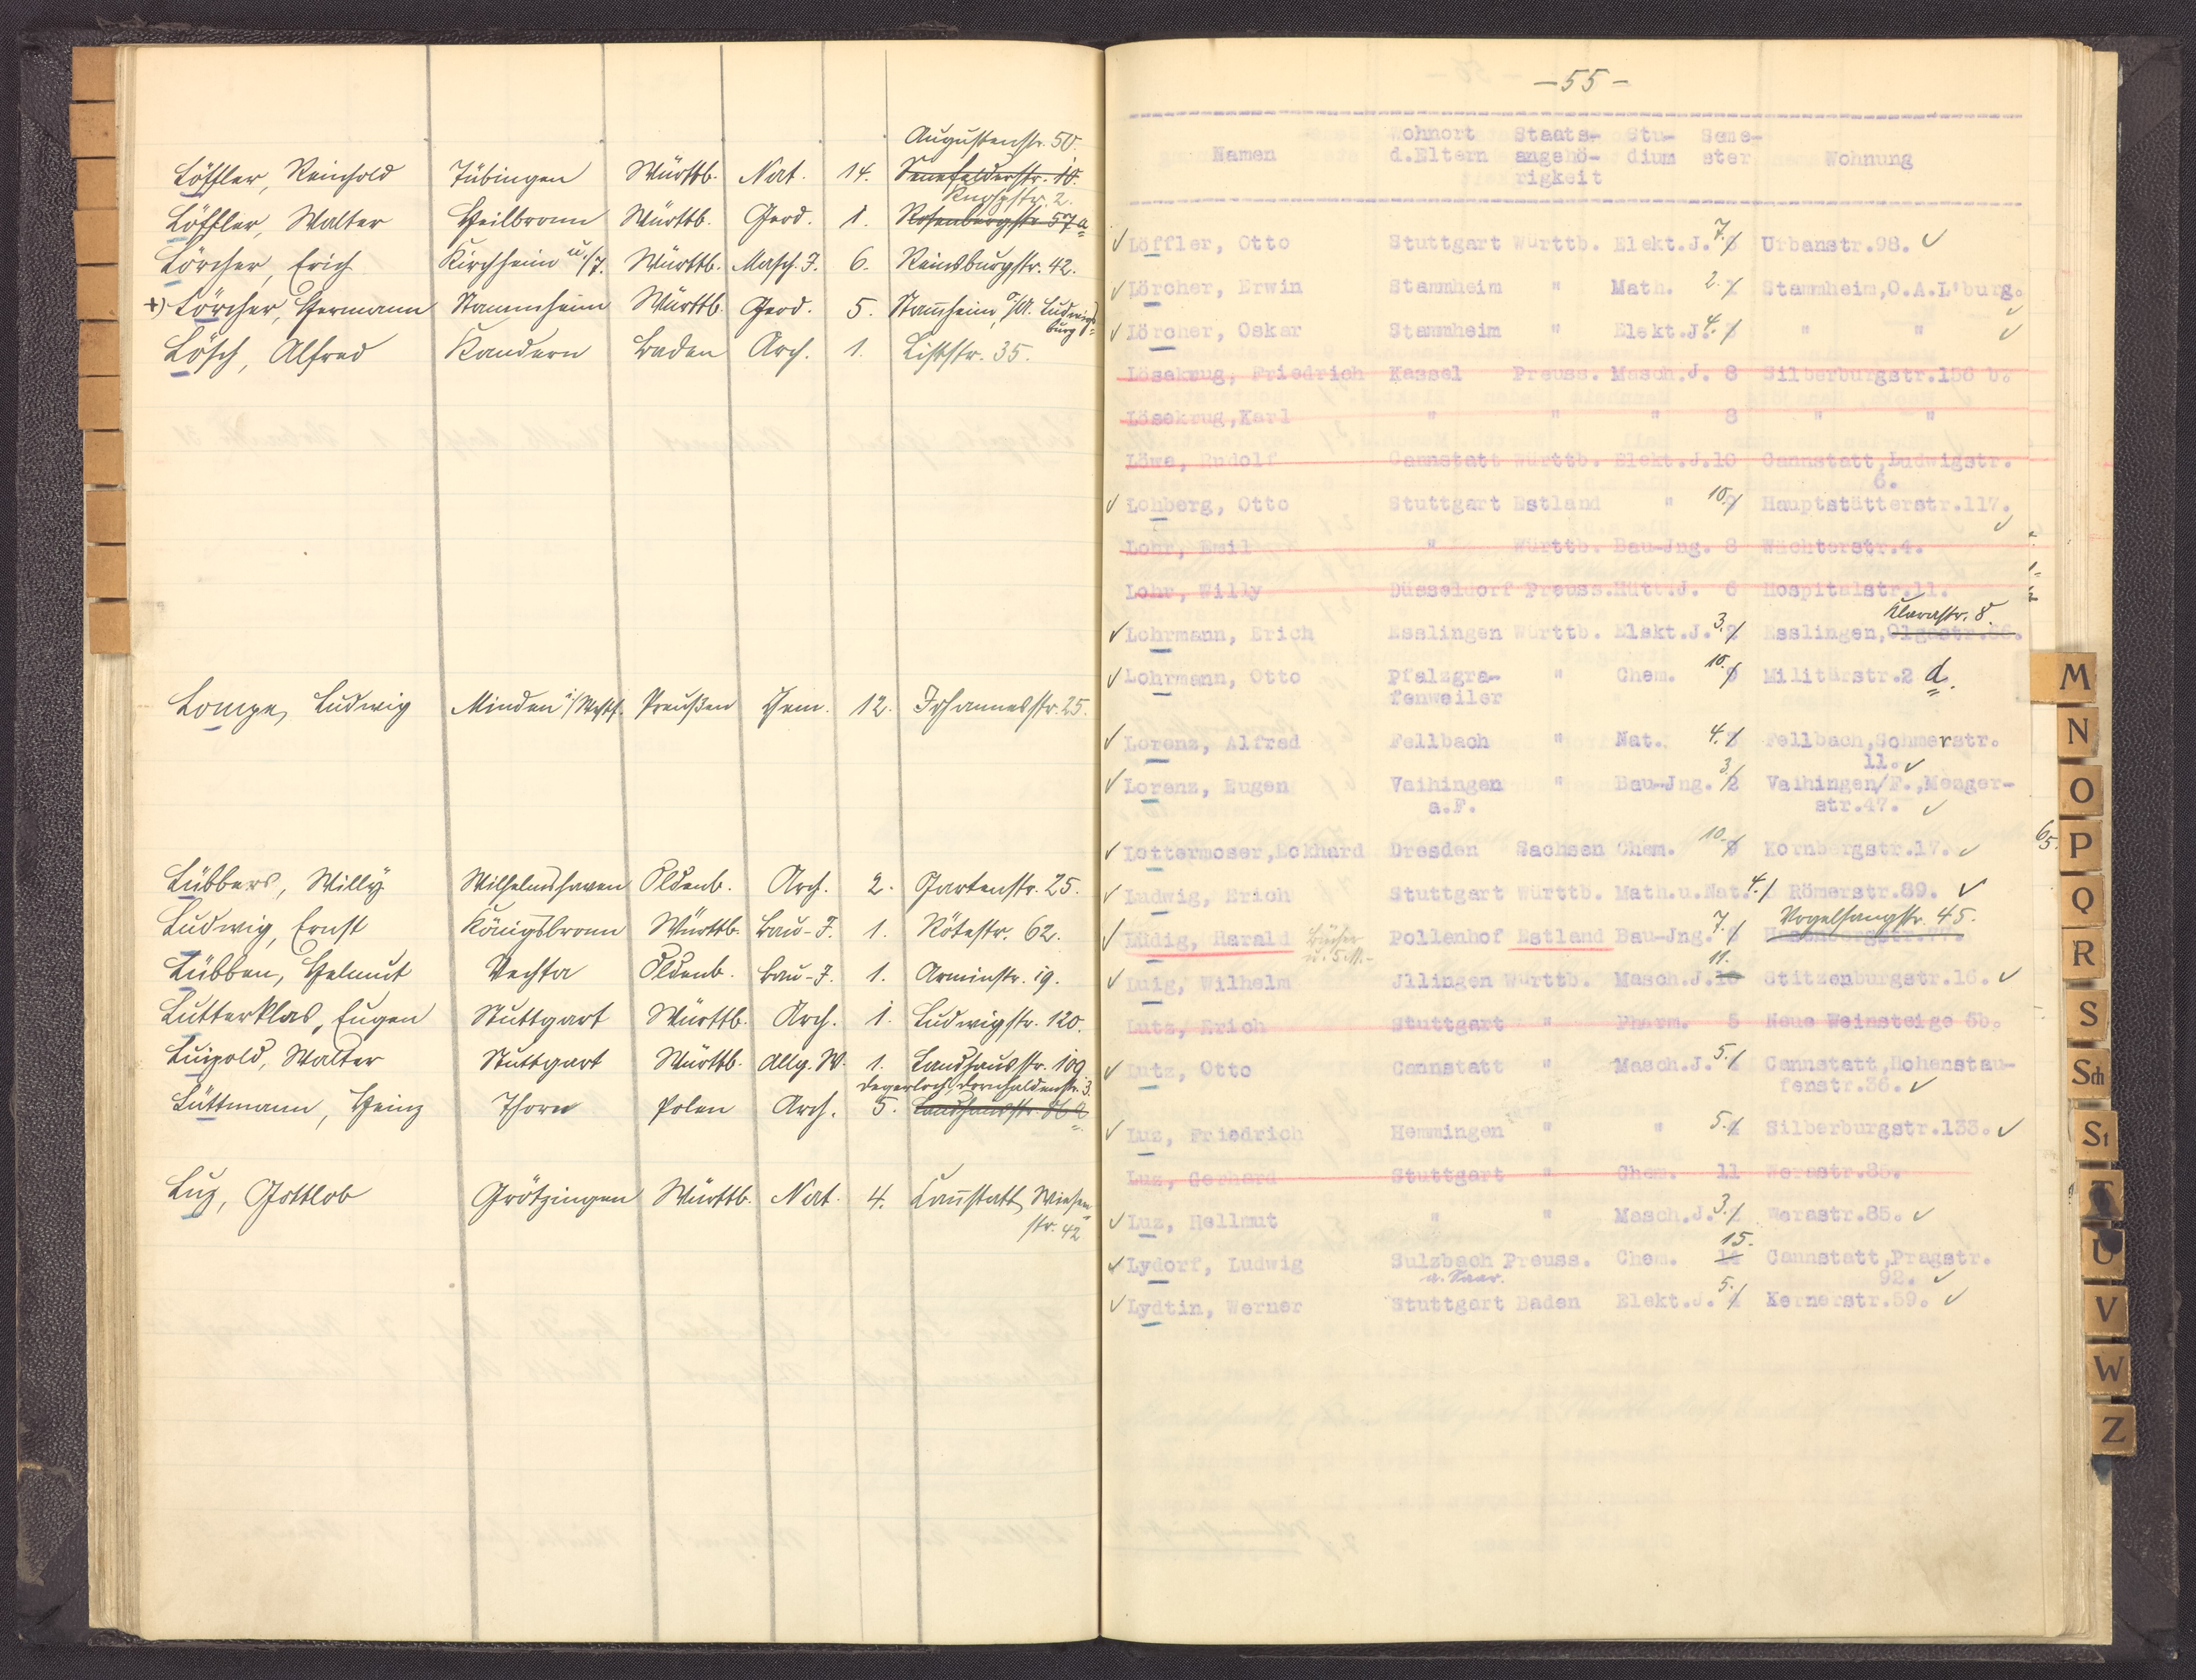 Augustenstr. 50.
Löffler, Reinhold Tübingen Württb. Nat. 14. Senefelderstr. 10.
Knospstr. 2.
Löffler, Walter Heilbronn Württb. Geod. 1. Rosenbergstr. 57a
Lörcher, Erich Kirchheim u/T. Württb. Masch. J. 6. Reinsburgstr. 42.
+) Lörcher, Hermann Stammheim Württb. Geod. 5. Stam̄heim, O/A. Ludwigs-
burg
Lösch, Alfred Kandern Baden Arch. 1. Liststr. 35.
Lompe, Ludwig Minden i/Westf. Preußen Chem. 12. Johannesstr. 25.
Lübbers, Willy Wilhelmshaven Oldenb. Arch. 2. Gartenstr. 25.
Ludwig, Ernst Königsbronn Württb. Bau-J. 1. Rötestr. 62.
Lübben, Helmut Vechta Oldenb. Bau-J. 1. Arminstr. 19.
Lutterklas, Eugen Stuttgart Württb. Arch. 1. Ludwigstr. 120.
Luipold, Walter Stuttgart Württb. Allg. W. 1. Landhausstr. 109.
Degerloch, Dornhaldenstr. 3.
Lüttmann, Heinz Thorn Polen Arch. 5. Landhausstr. 86a
Luz, Gottlob Grötzingen Württb. Nat. 4. Can̄statt, Wiesen-
str. 42
-55-
Wohnort Staats- Stu- Seme-
Namen d.Eltern angehö- dium ster Wohnung
rigkeit
✓ Löffler, Otto Stuttgart Württb. Elekt.J. 7. 6 Urbanstr.98. ✓
✓ Lörcher, Erwin Stammheim " Math. 2. 1 Stammheim,O.A.L'burg. ✓
✓ Lörcher, Oskar Stammheim " Elekt.J. 4. 3 " " ✓
Lösekrug, Friedrich Kassel Preuss. Masch.J. 8 Silberburgstr.156 b.
Lösekrug,Karl " " " 8 " "
Löwe, Rudolf Cannstatt Württb. Elekt.J.10 Cannstatt,Ludwigstr.
6.
✓ Lohberg, Otto Stuttgart Estland " 10. 9 Hauptstätterstr.117. ✓
Lohr, Emil " Württb. Bau-Jng. 8 Wächterstr.4.
Lohr, Willy Düsseldorf Preuss.Hütt.J. 6 Hospitalstr.11.
Klarastr. 8.
✓ Lohrmann, Erich Esslingen Württb. Elekt.J. 3. 2 Esslingen,Olgastr.
✓ Lohrmann, Otto Pfalzgra- " Chem. 10. 9 Militärstr.2 d.
fenweiler
✓ Lorenz, Alfred Fellbach " Nat. 4. 3 Fellbach,Sohmerstr.
11. ✓
✓ Lorenz, Eugen Vaihingen " Bau-Jng. 3 2 Vaihingen/F.,Menger-
a.F. str.47. ✓
✓ Lottermoser,Eckhard Dresden Sachsen Chem. 10. 9 Kornbergstr.17. ✓
✓ Ludwig, Erich Stuttgart Württb. Math.u.Nat. 4. Römerstr.89. ✓
Vogelsangstr. 45.
✓ Lüdig, Harald Bücher u. 5 M.- Pollenhof Estland Bau-Jng. 7. 6 Hasenbergstr.
✓ Luig, Wilhelm Jllingen Württb. Masch.J. 11. 10 Stitzenburgstr.16. ✓
Lutz, Erich Stuttgart " Pharm. 5 Neue Weinsteige 5b.
✓ Lutz, Otto Cannstatt " Masch.J. 5. 4 Cannstatt,Hohenstau-
fenstr.36. ✓
✓ Luz, Friedrich Hemmingen " " 5. 4 Silberburgstr.133. ✓
Luz, Gerhard Stuttgart " Chem. 11 Werastr.85.
✓ Luz, Hellmut " " Masch.J. 3. 2 Werastr.85. ✓
✓ Lydorf, Ludwig Sulzbach Preuss. Chem. 15. 14 Cannstatt,Pragstr.
a. Saar. 92. ✓
✓ Lydtin, Werner Stuttgart Baden Elekt.J. 5. 4 Kernerstr.59. ✓
65
M
N
O
P
Q
R
S
Sch
St
T
U
V
W
Z